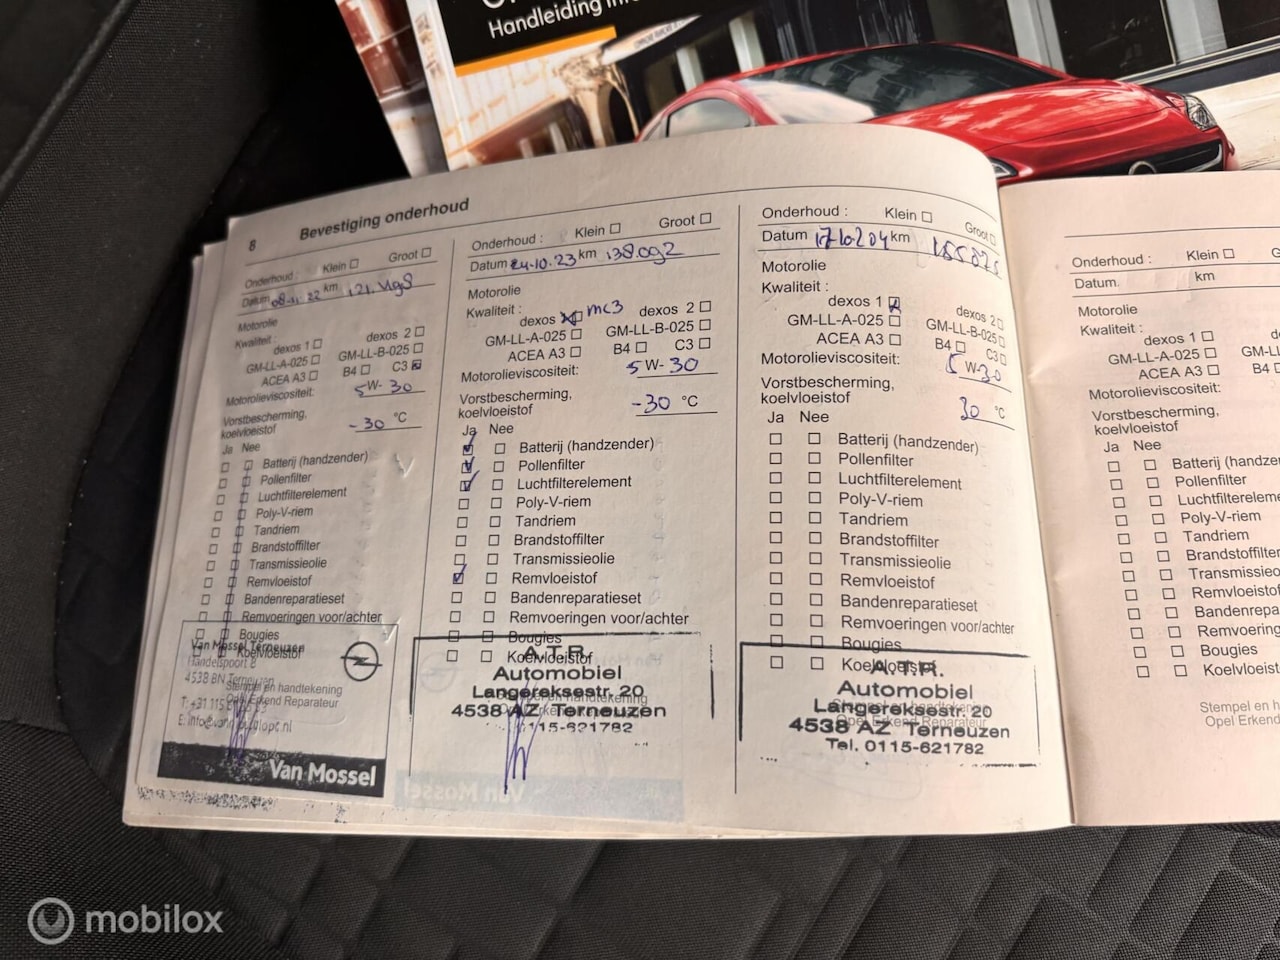 Handleiding
8 Bevestiging onderhoud
Onderhoud : Klein Groot
Datum 08-11-22 km
Motorolie
Kwaliteit :
dexos 1 dexos 2
GM-LL-A-025 GM-LL-B-025
ACEA A3 B4 C3
Motorolieviscositeit: 5 W- 30
Vorstbescherming,
koelvloeistof -30 °C
Ja Nee
Batterij (handzender)
Pollenfilter
Luchtfilterelement
Poly-V-riem
Tandriem
Brandstoffilter
Transmissieolie
Remvloeistof
Bandenreparatieset
Remvoeringen voor/achter
Bougies
Koelvloeistof
Van Mossel Terneuzen
Handelspoort 8
4538 BN Terneuzen
Stempel en handtekening
Opel Erkend Reparateur
Van Mossel
Onderhoud : Klein Groot
Datum 24.10.23 km 138.092
Motorolie
Kwaliteit :
dexos mc3 dexos 2
GM-LL-A-025 GM-LL-B-025
ACEA A3 B4 C3
Motorolieviscositeit: 5 W- 30
Vorstbescherming,
koelvloeistof -30 °C
Ja Nee
Batterij (handzender)
Pollenfilter
Luchtfilterelement
Poly-V-riem
Tandriem
Brandstoffilter
Transmissieolie
Remvloeistof
Bandenreparatieset
Remvoeringen voor/achter
Bougies
Koelvloeistof
A.T.R.
Automobiel
Langereksestr. 20
4538 AZ Terneuzen
0115-621782
Onderhoud : Klein Groot
Datum km
Motorolie
Kwaliteit :
dexos 1 dexos 2
GM-LL-A-025 GM-LL-B-025
ACEA A3 B4 C3
Motorolieviscositeit: 5 W-30
Vorstbescherming,
koelvloeistof 30 °C
Ja Nee
Batterij (handzender)
Pollenfilter
Luchtfilterelement
Poly-V-riem
Tandriem
Brandstoffilter
Transmissieolie
Remvloeistof
Bandenreparatieset
Remvoeringen voor/achter
Bougies
Koelvloeistof
A.T.R.
Automobiel
Langereksestr. 20
Opel Erkend Reparateur
4538 AZ Terneuzen
Tel. 0115-621782
Onderhoud : Klein
Datum. km
Motorolie
Kwaliteit :
dexos 1
GM-LL-A-025
ACEA A3
Motorolieviscositeit:
Vorstbescherming,
koelvloeistof
Ja Nee
Batterij
Pollenfilter
Poly-V-riem
Tandriem
Bougies
Koelvloeistof
Stempel en
Opel
mobilox